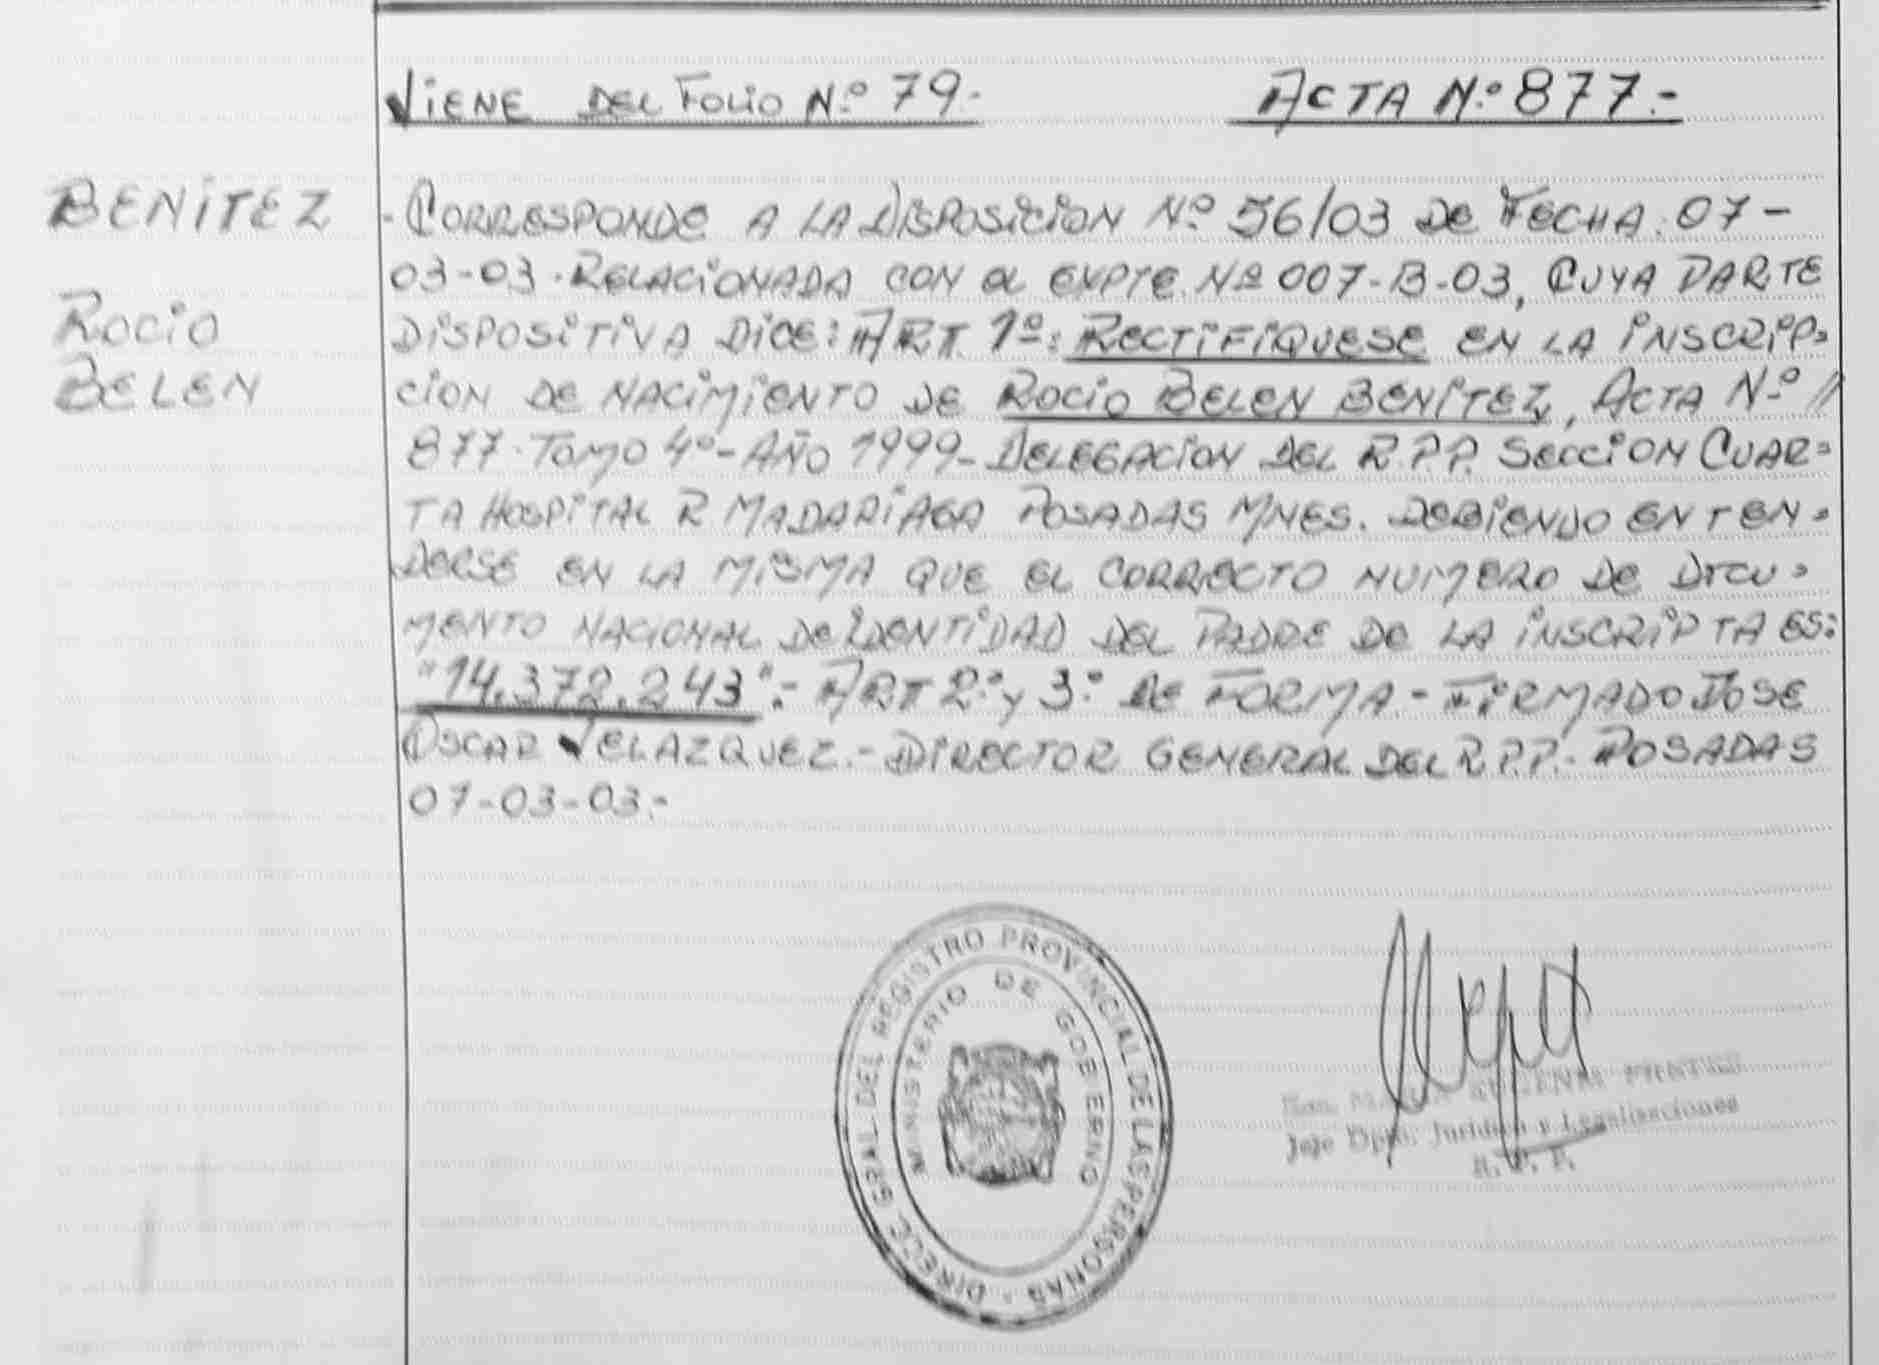 VIENE DEL FOLIO N.º 79.-
ACTA N.º 877.-
BENITEZ
ROCIO
BELEN
-CORRESPONDE A LA DISPOSICION Nº 56/03 DE FECHA: 07-
03-03. RELACIONADA CON EL EXPTE. Nº 007-B-03, CUYA PARTE
DISPOSITIVA DICE: ART. 1º: RECTIFIQUESE EN LA INSCRIPP=
CION DE NACIMIENTO DE ROCIO BELEN BENITEZ, ACTA Nº //
877. TOMO 4º- AÑO 1999- DELEGACION DEL R.P.P. SECCION CUAR=
TA HOSPITAL R MADARIAGA POSADAS MNES. DEBIENDO ENTEN=
DERSE EN LA MISMA QUE EL CORRECTO NUMERO DE DICU=
MENTO NACIONAL DE IDENTIDAD DEL PADRE DE LA INSCRIPTA ES:
"14.372.243".- ART 2.º y 3.º DE FORMA- FIRMADO JOSE
OSCAR VELAZQUEZ.- DIRECTOR GENERAL DEL R.P.P.- POSADAS
07-03-03.-
DIRECC GRAL DEL REGISTRO PROVINCIAL DE LAS PERSONAS
MINISTERIO DE GOBIERNO
MARIA EUGENIA
Jefe Dpto. Jurídico y Legalizaciones
R. P. P.